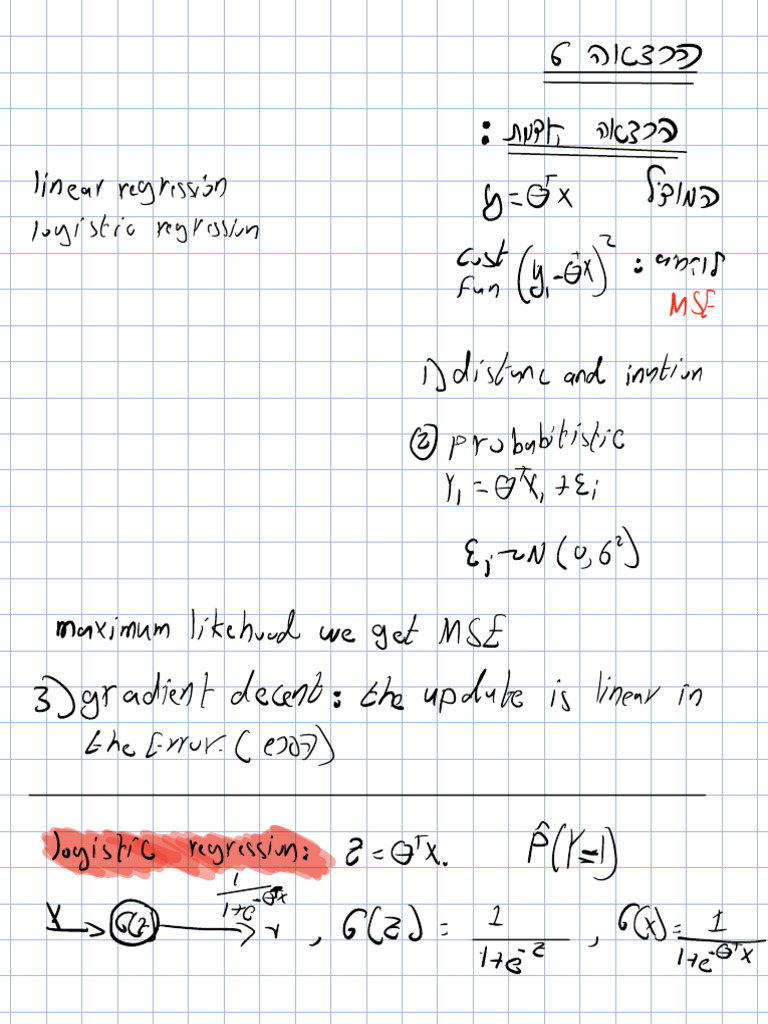 הרצאה 6
הרצאה קודמת :
linear regression
logistic regression
המודל y = θᵀx
cost fun (yᵢ - θᵀx)² :
MSE
1) distanc and
② probabitistic
Yᵢ = θᵀXᵢ + εᵢ
εᵢ ~ N(0, σ²)
maximum likehood we get MSE
3) gradient decent: the update is linear in
the Error. (הפרש)
logistic regression: z = θᵀx. P̂(Y=1)
σ(z) 1/(1+e^-θᵀx) , σ(z) = 1/(1+e^-z) , σ(x) = 1/(1+e^-θᵀx)